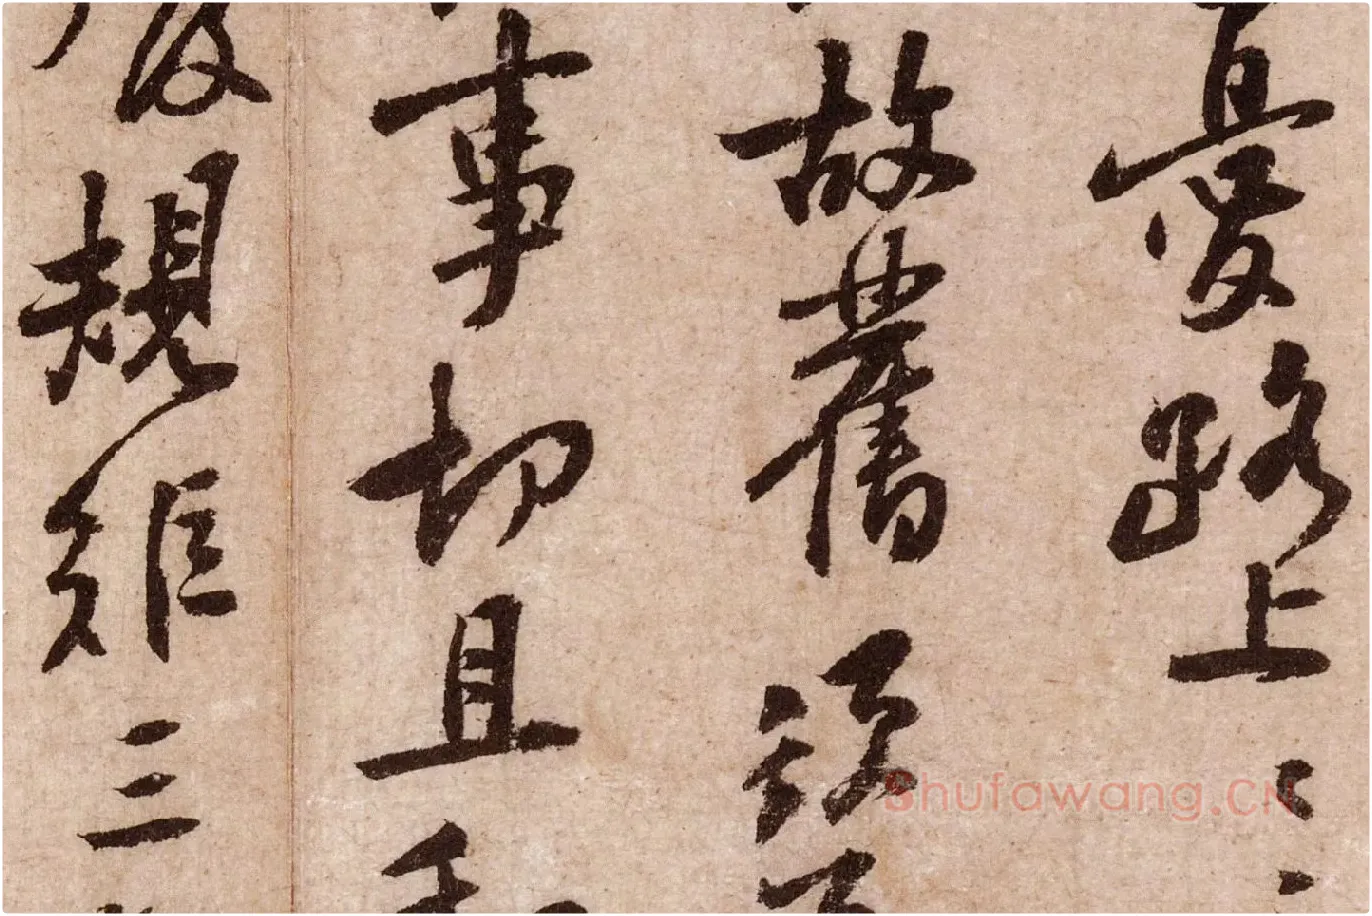 憂路上
故舊
事切且
規矩三
Shufawang.CN